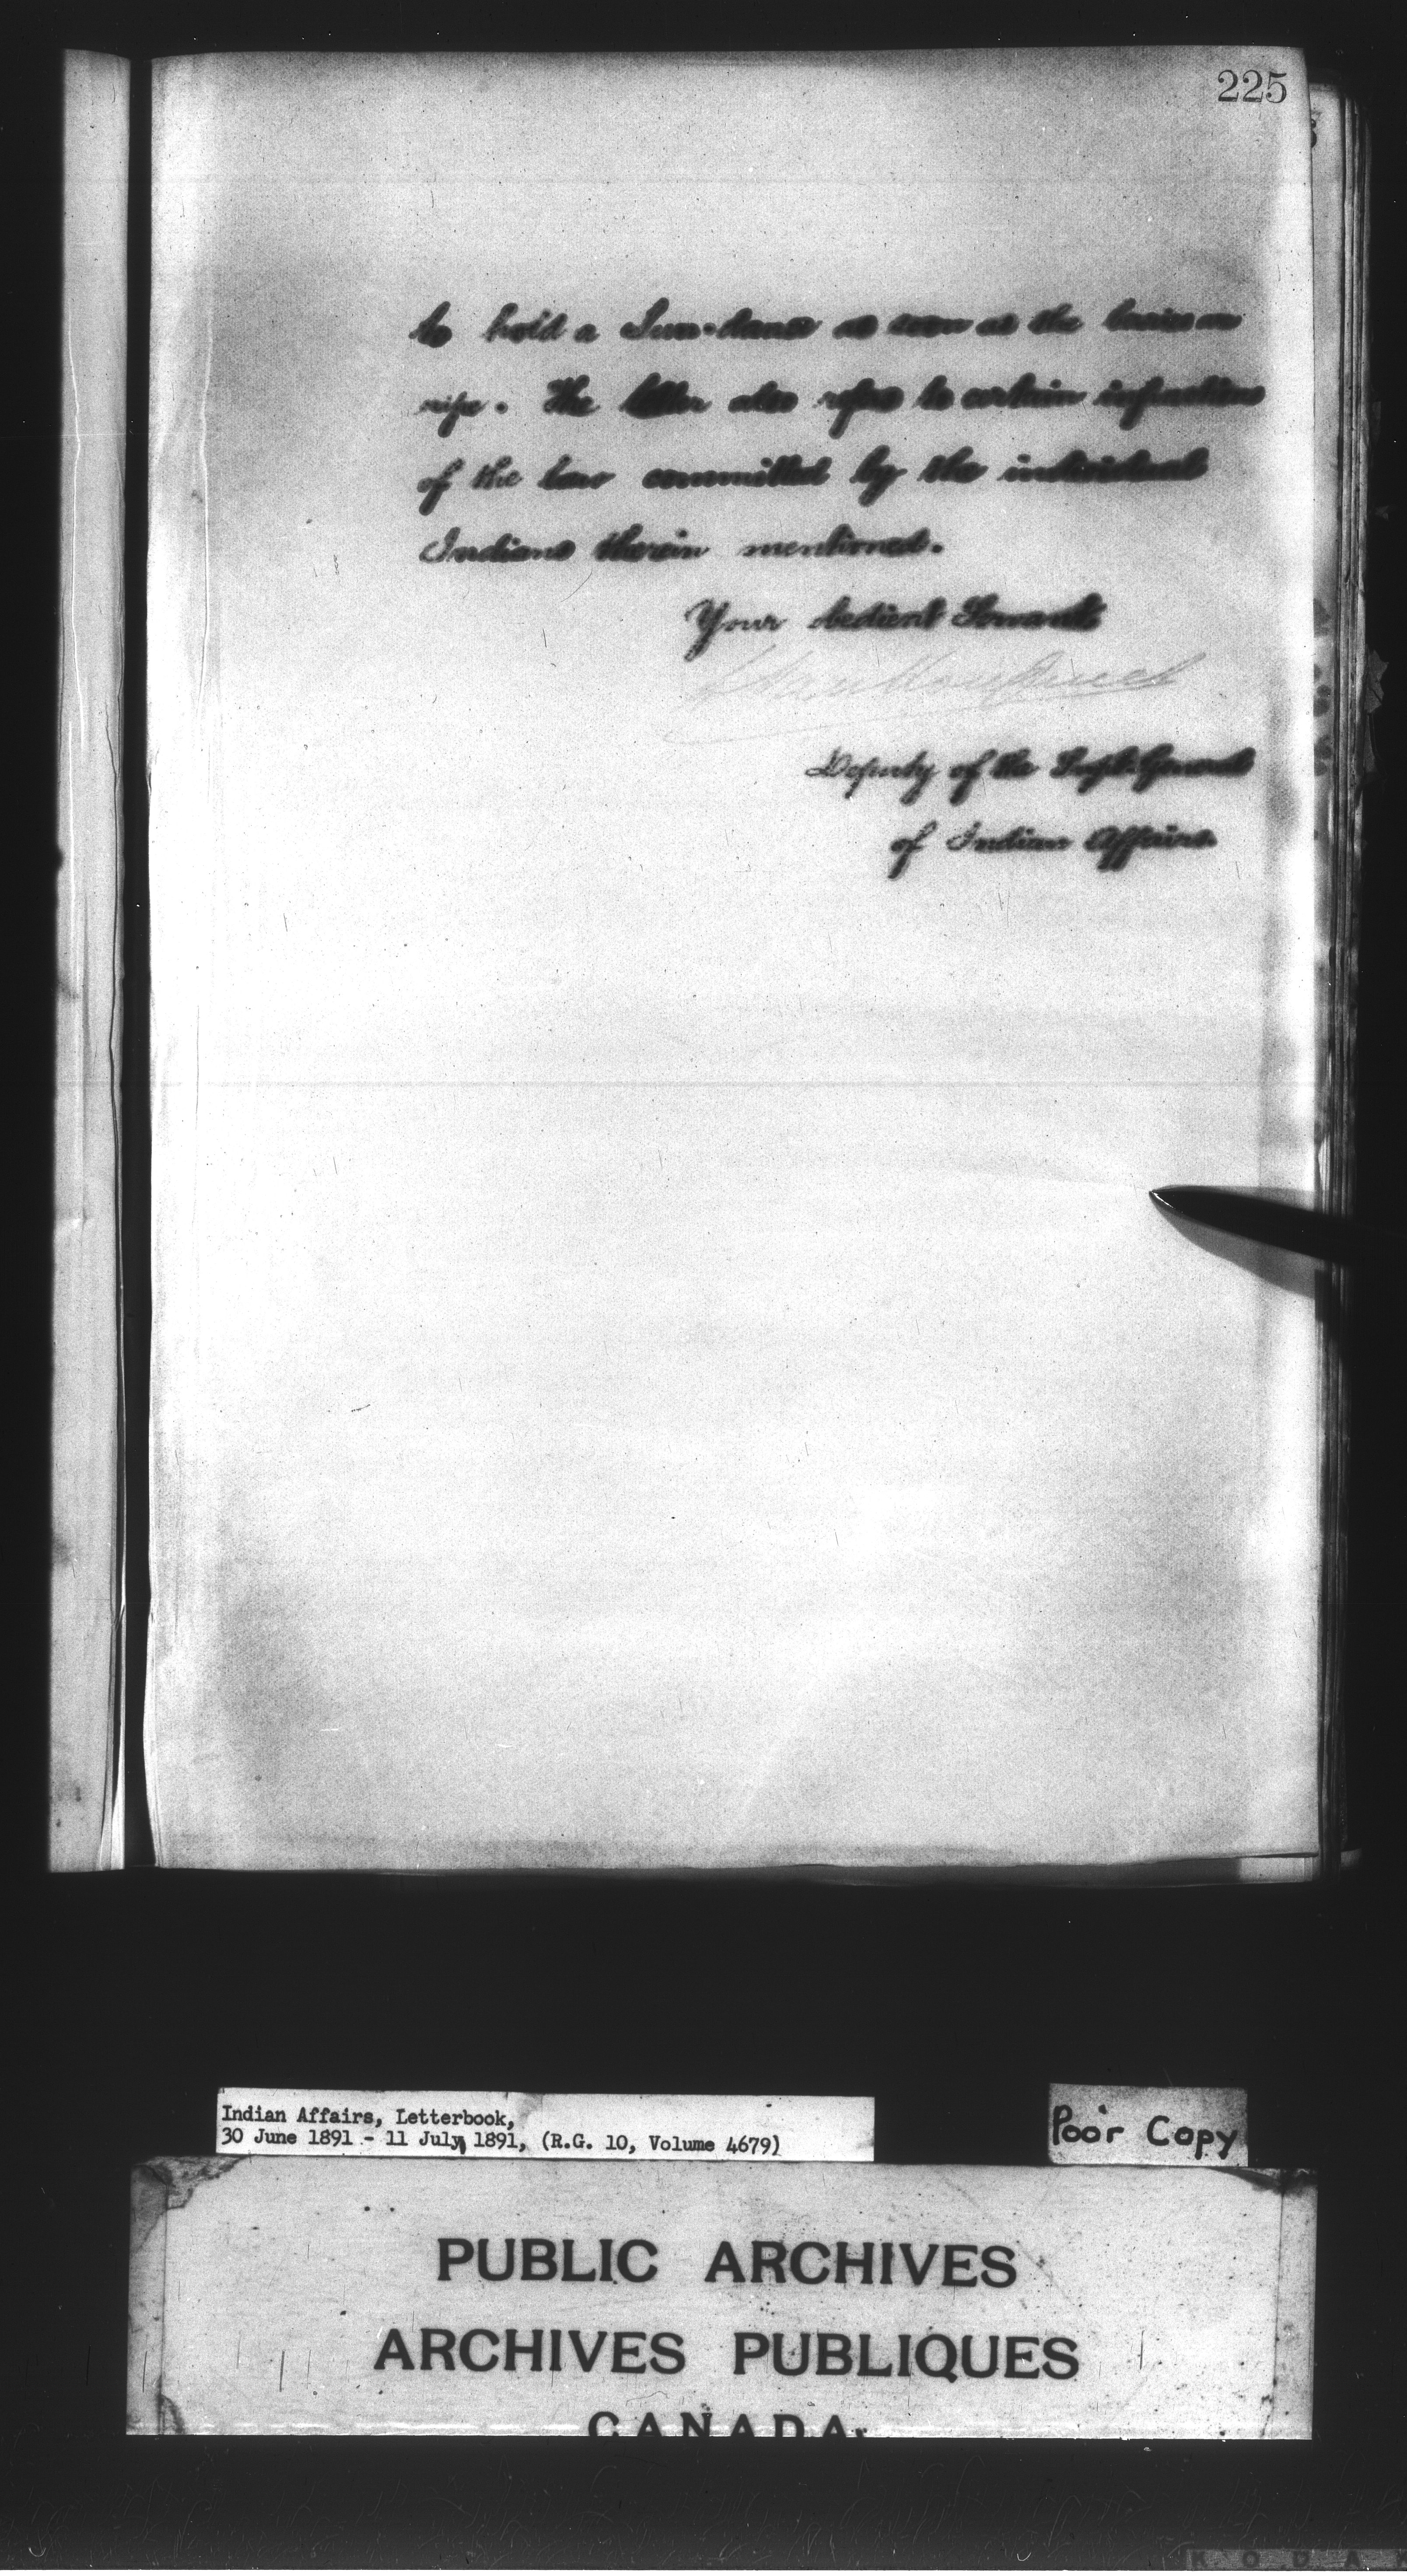 225
to hold a Sun-dance as soon as the berries are
ripe. The letter also refers to certain infractions
of the law committed by the individual
Indians therein mentioned.
Your obedient Servant
L. Vankoughnet
Deputy of the Supt. General
of Indian Affairs.
Indian Affairs, Letterbook,
30 June 1891 - 11 July 1891, (R.G. 10, Volume 4679)
Poor Copy
PUBLIC ARCHIVES
ARCHIVES PUBLIQUES
CANADA